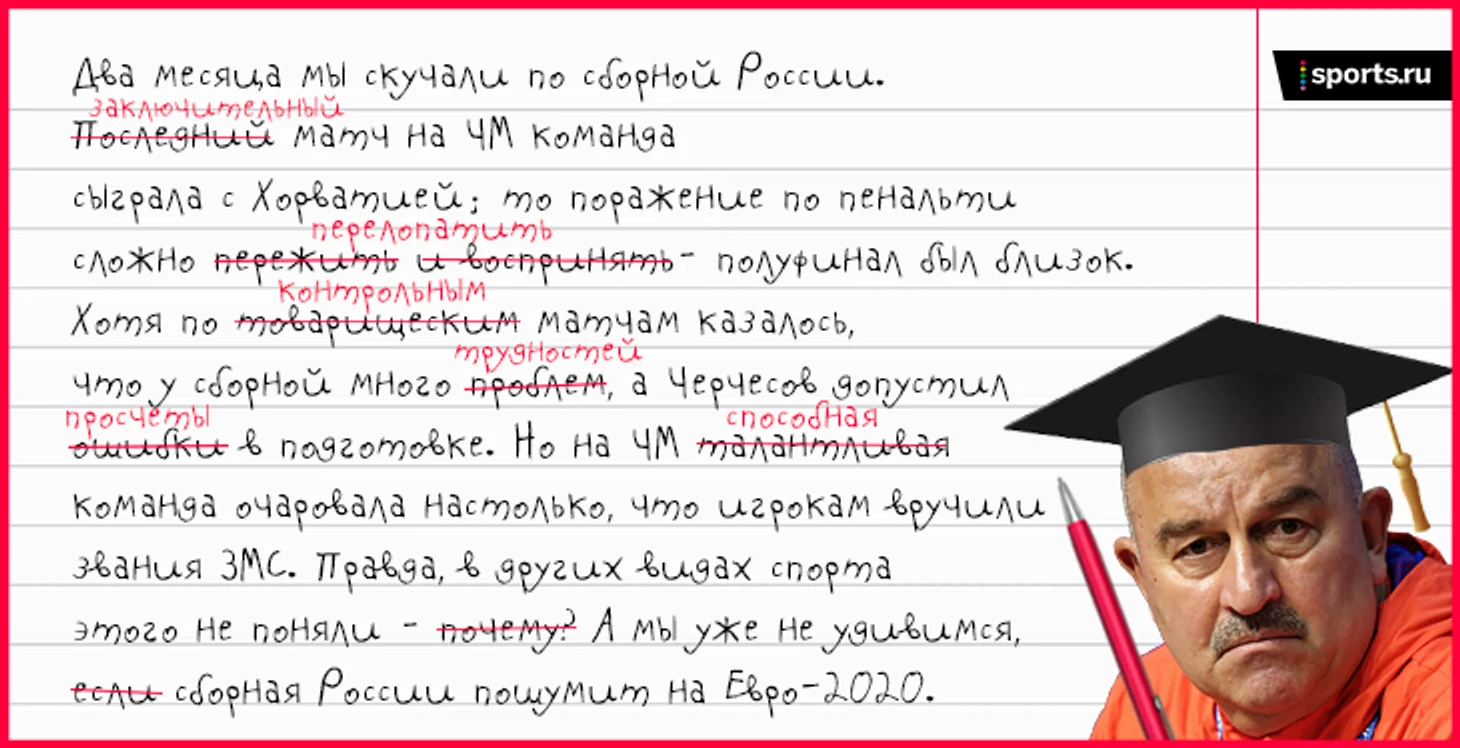 Два месяца мы скучали по сборной России.
sports.ru
заключительный
Последний матч на ЧМ команда
сыграла с Хорватией; то поражение по пенальти
перелопатить
сложно пережить и воспринять - полуфинал был близок.
контрольным
Хотя по товарищеским матчам казалось,
трудностей
что у сборной много проблем, а Черчесов допустил
просчёты способная
ошибки в подготовке. Но на ЧМ талантливая
команда очаровала настолько, что игрокам вручили
звания ЗМС. Правда, в других видах спорта
этого не поняли - почему? А мы уже не удивимся,
если сборная России пошумит на Евро-2020.